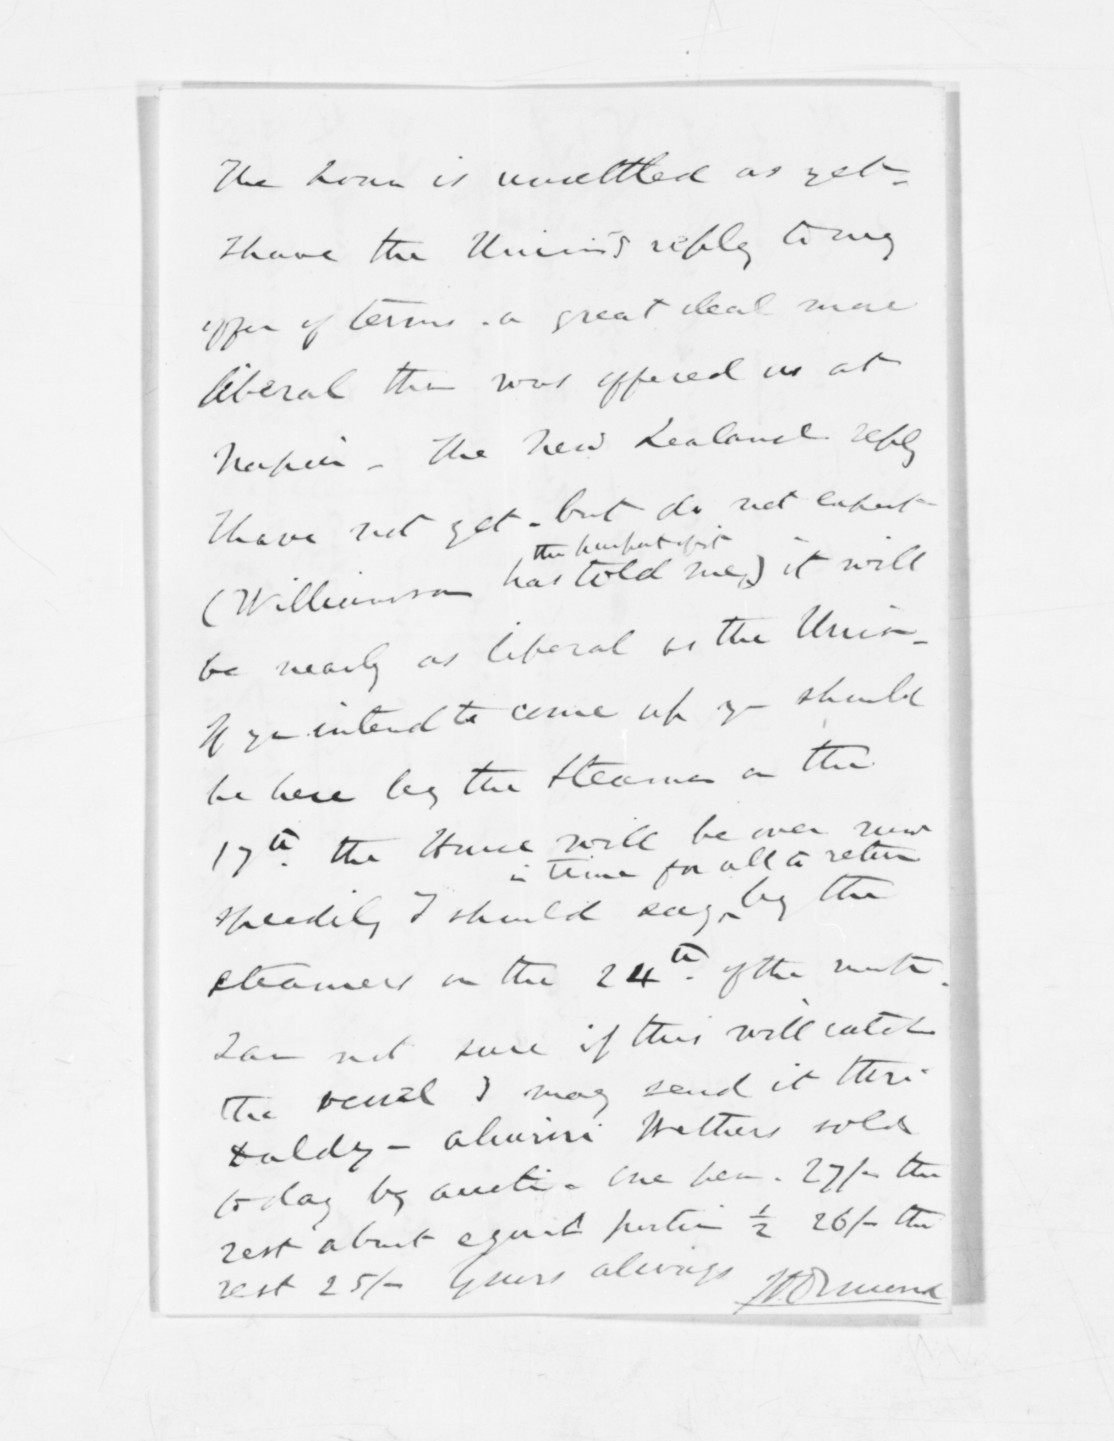 The Loan is unsettled as yet -
I have the Union's reply to my
offer of terms - a great deal more
liberal than was offered us at
Napier - The New Zealand reply
I have not yet - but do not expect
(Williamson the
has told me) it will
be nearly as liberal as the Union -
If you intend to come up you should
be here by the Steamer on the
17th. the House will be over now
in time for all to return
speedily I should say, by the
steamers on the 24th. of the month.
I am not sure if this will catch
the vessel I may send it thro'
- Ahuriri Wethers sold
to day by auction - one pen - 27/- the
rest about equal portion ½ 26/- the
rest 25/- Yours always JDOrmond